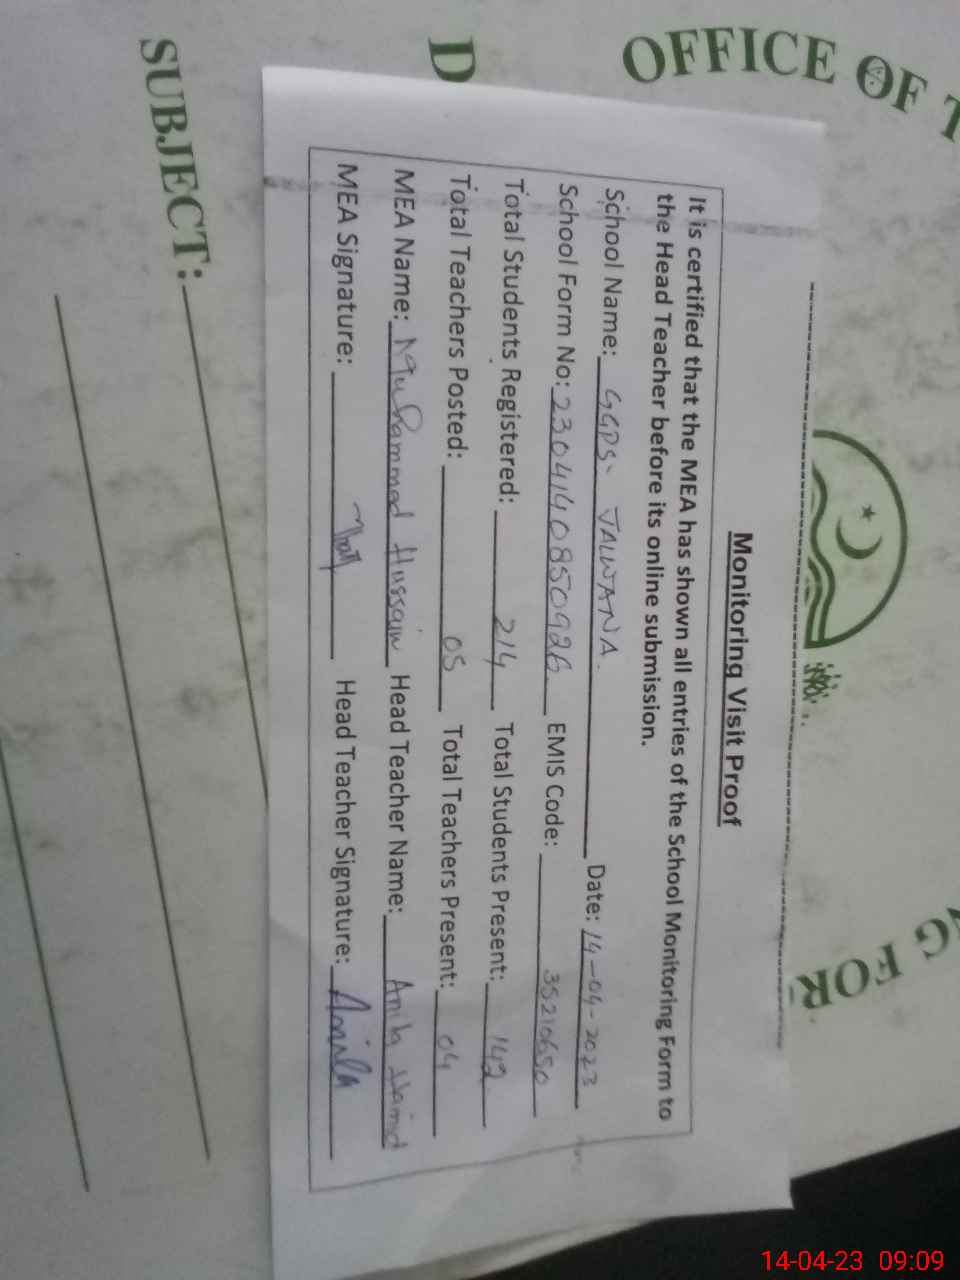 OFFICE OF T
D
NG FOR
SUBJECT:
Monitoring Visit Proof
It is certified that the MEA has shown all entries of the School Monitoring Form to
the Head Teacher before its online submission.
School Name: GGPS- JALWANA. Date: 14-04-2023
School Form No: 2304140850926 EMIS Code: 35210650
Total Students Registered: 214 Total Students Present: 142
Total Teachers Posted: 05 Total Teachers Present: 04
MEA Name: Muhammad Hussain Head Teacher Name: Anila Hamid
MEA Signature: Head Teacher Signature: Anila
14-04-23 09:09